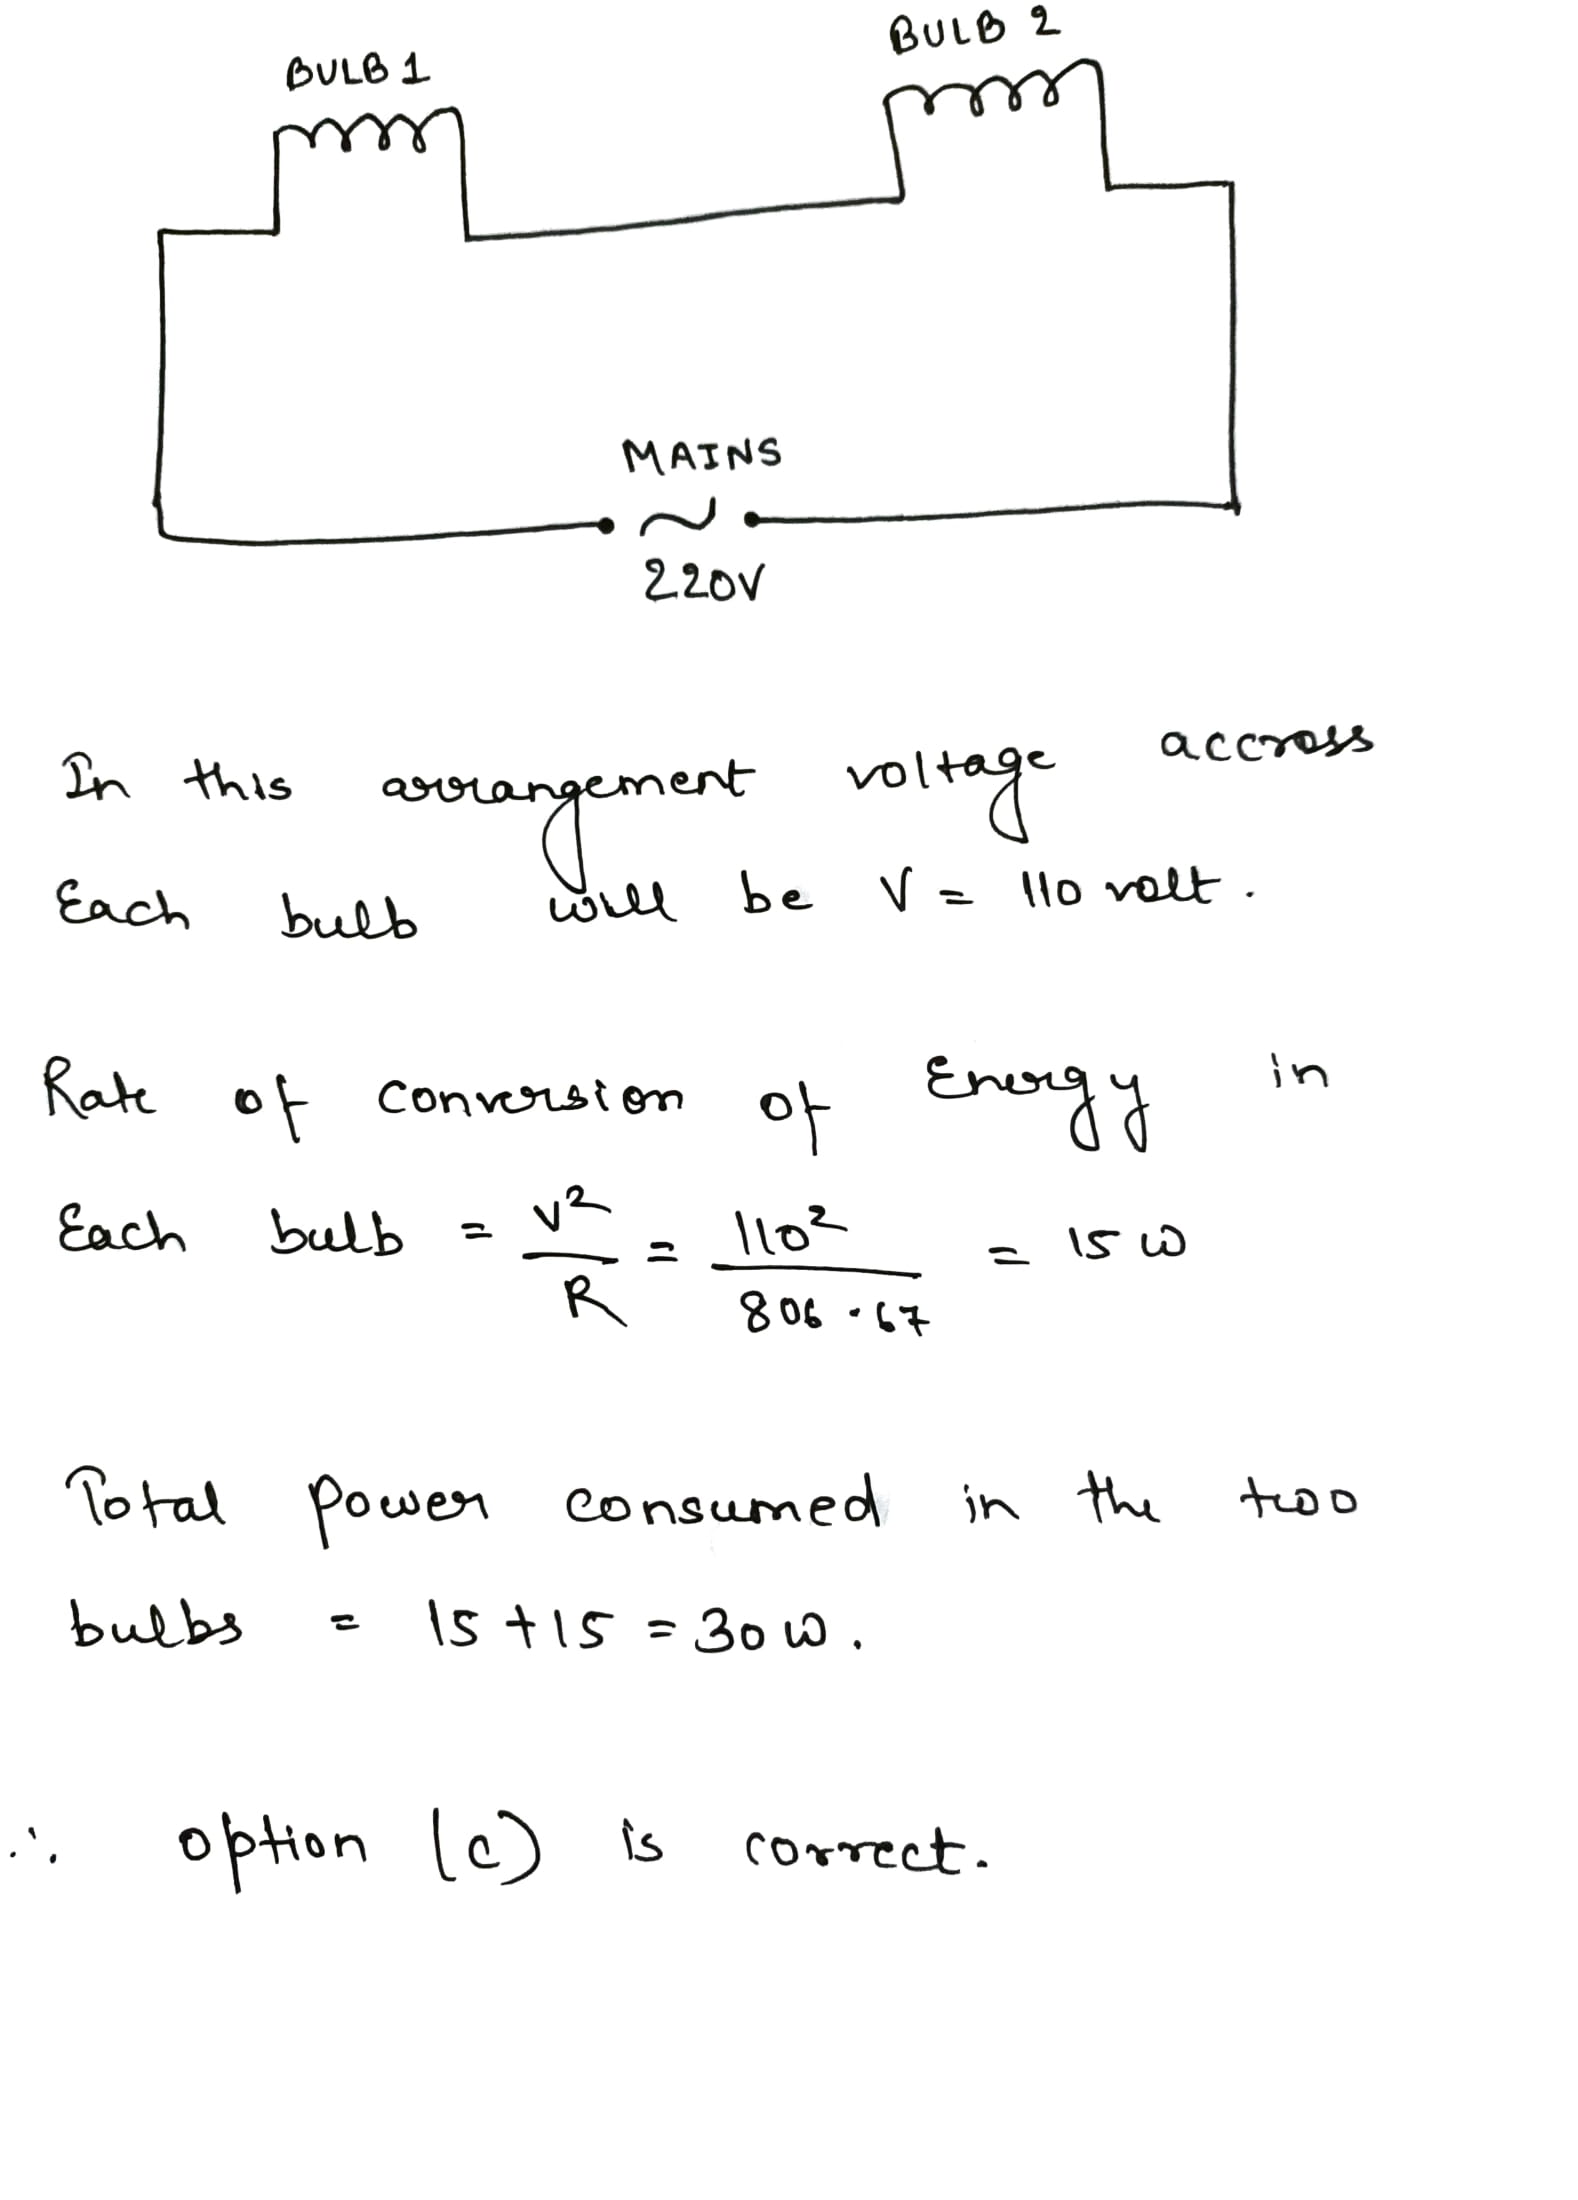 BULB 1
BULB 2
MAINS
220V
In this arrangement voltage accross
Each bulb will be V = 110 volt.
Rate of conversion of Energy in
Each bulb = V²/R = 110²/806.67 = 15 W
Total power consumed in the two
bulbs = 15 + 15 = 30 W.
∴ option (c) is correct.